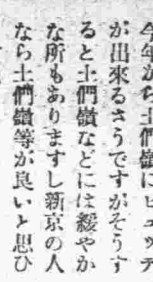 今年から土們嶺にヒュッテ
が出來るさうですがそうす
ると土們嶺などには緩やか
な所もありますし新京の人
なら土們嶺等が良いと思ひ